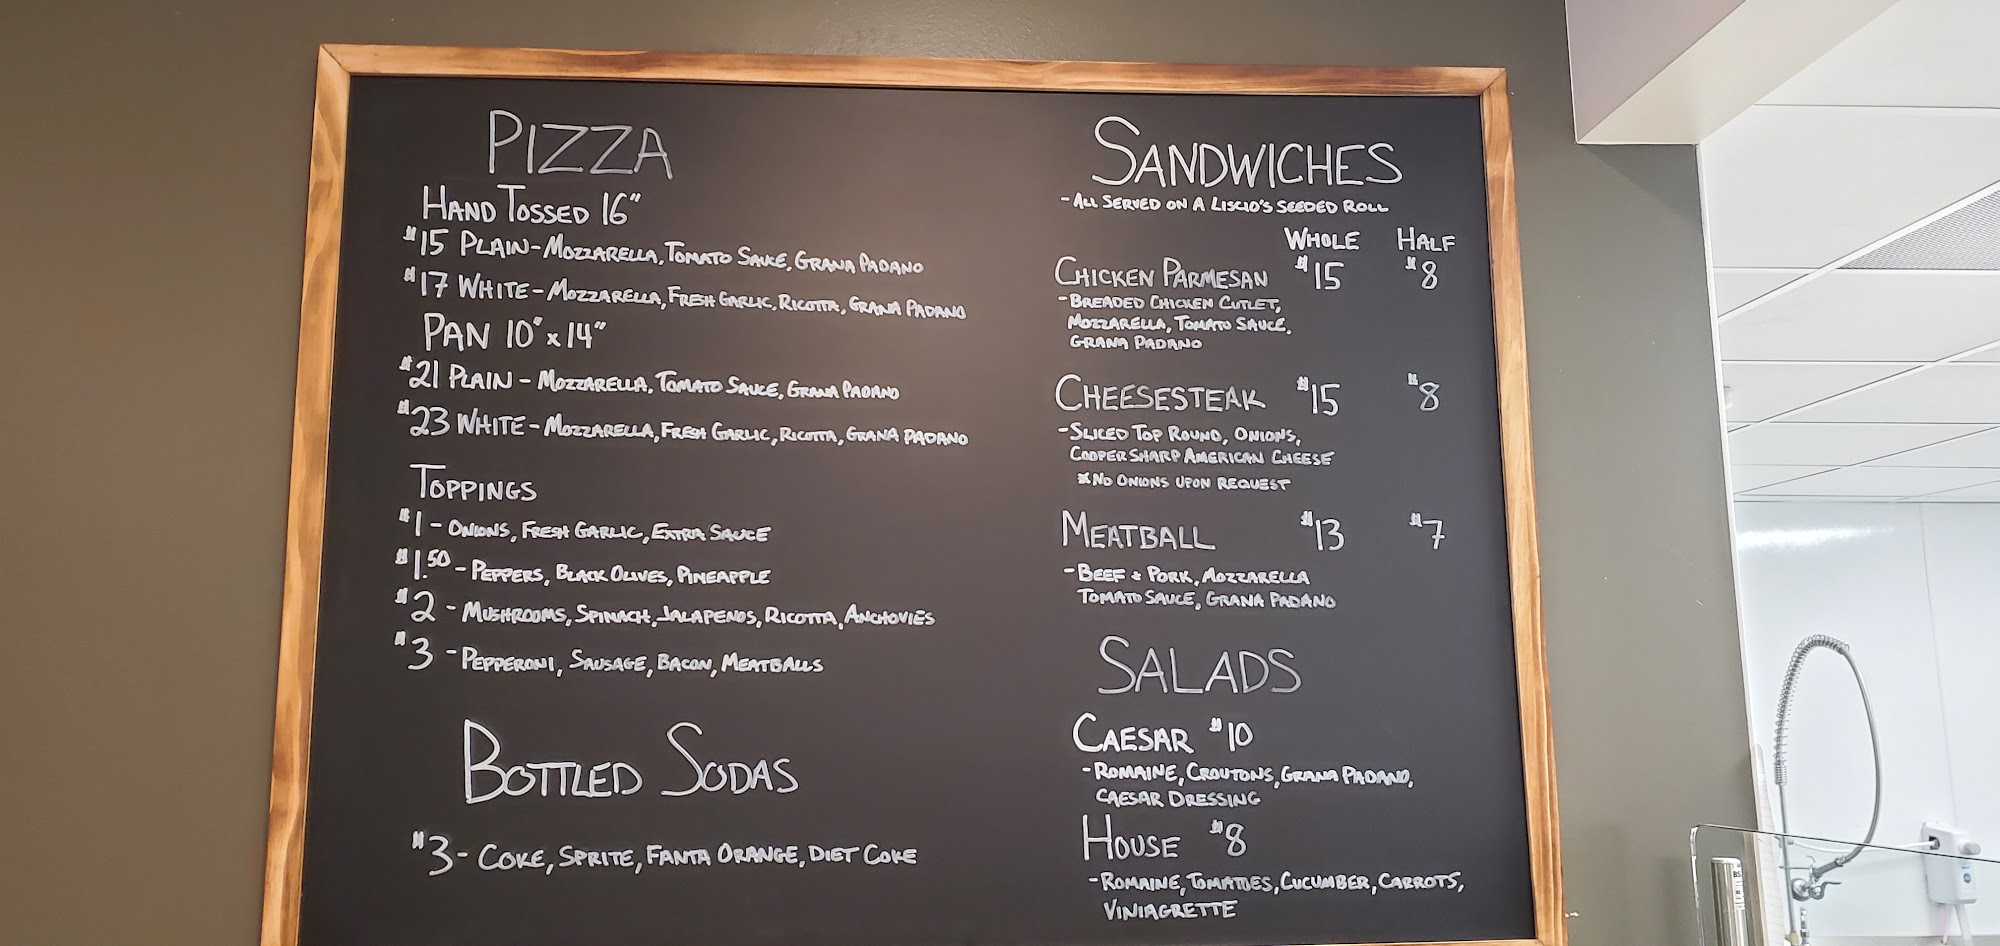 PIZZA
HAND TOSSED 16"
$15 PLAIN - MOZZARELLA, TOMATO SAUCE, GRANA PADANO
$17 WHITE - MOZZARELLA, FRESH GARLIC, RICOTTA, GRANA PADANO
PAN 10" x 14"
$21 PLAIN - MOZZARELLA, TOMATO SAUCE, GRANA PADANO
$23 WHITE - MOZZARELLA, FRESH GARLIC, RICOTTA, GRANA PADANO
TOPPINGS
$1 - ONIONS, FRESH GARLIC, EXTRA SAUCE
$1.50 - PEPPERS, BLACK OLIVES, PINEAPPLE
$2 - MUSHROOMS, SPINACH, JALAPENOS, RICOTTA, ANCHOVIES
$3 - PEPPERONI, SAUSAGE, BACON, MEATBALLS
BOTTLED SODAS
$3 - COKE, SPRITE, FANTA ORANGE, DIET COKE
SANDWICHES
- ALL SERVED ON A LISCIO'S SEEDED ROLL
WHOLE HALF
CHICKEN PARMESAN $15 $8
- BREADED CHICKEN CUTLET,
MOZZARELLA, TOMATO SAUCE,
GRANA PADANO
CHEESESTEAK $15 $8
- SLICED TOP ROUND, ONIONS,
COOPER SHARP AMERICAN CHEESE
* NO ONIONS UPON REQUEST
MEATBALL $13 $7
- BEEF & PORK, MOZZARELLA
TOMATO SAUCE, GRANA PADANO
SALADS
CAESAR $10
- ROMAINE, CROUTONS, GRANA PADANO,
CAESAR DRESSING
HOUSE $8
- ROMAINE, TOMATOES, CUCUMBER, CARROTS,
VINIAGRETTE